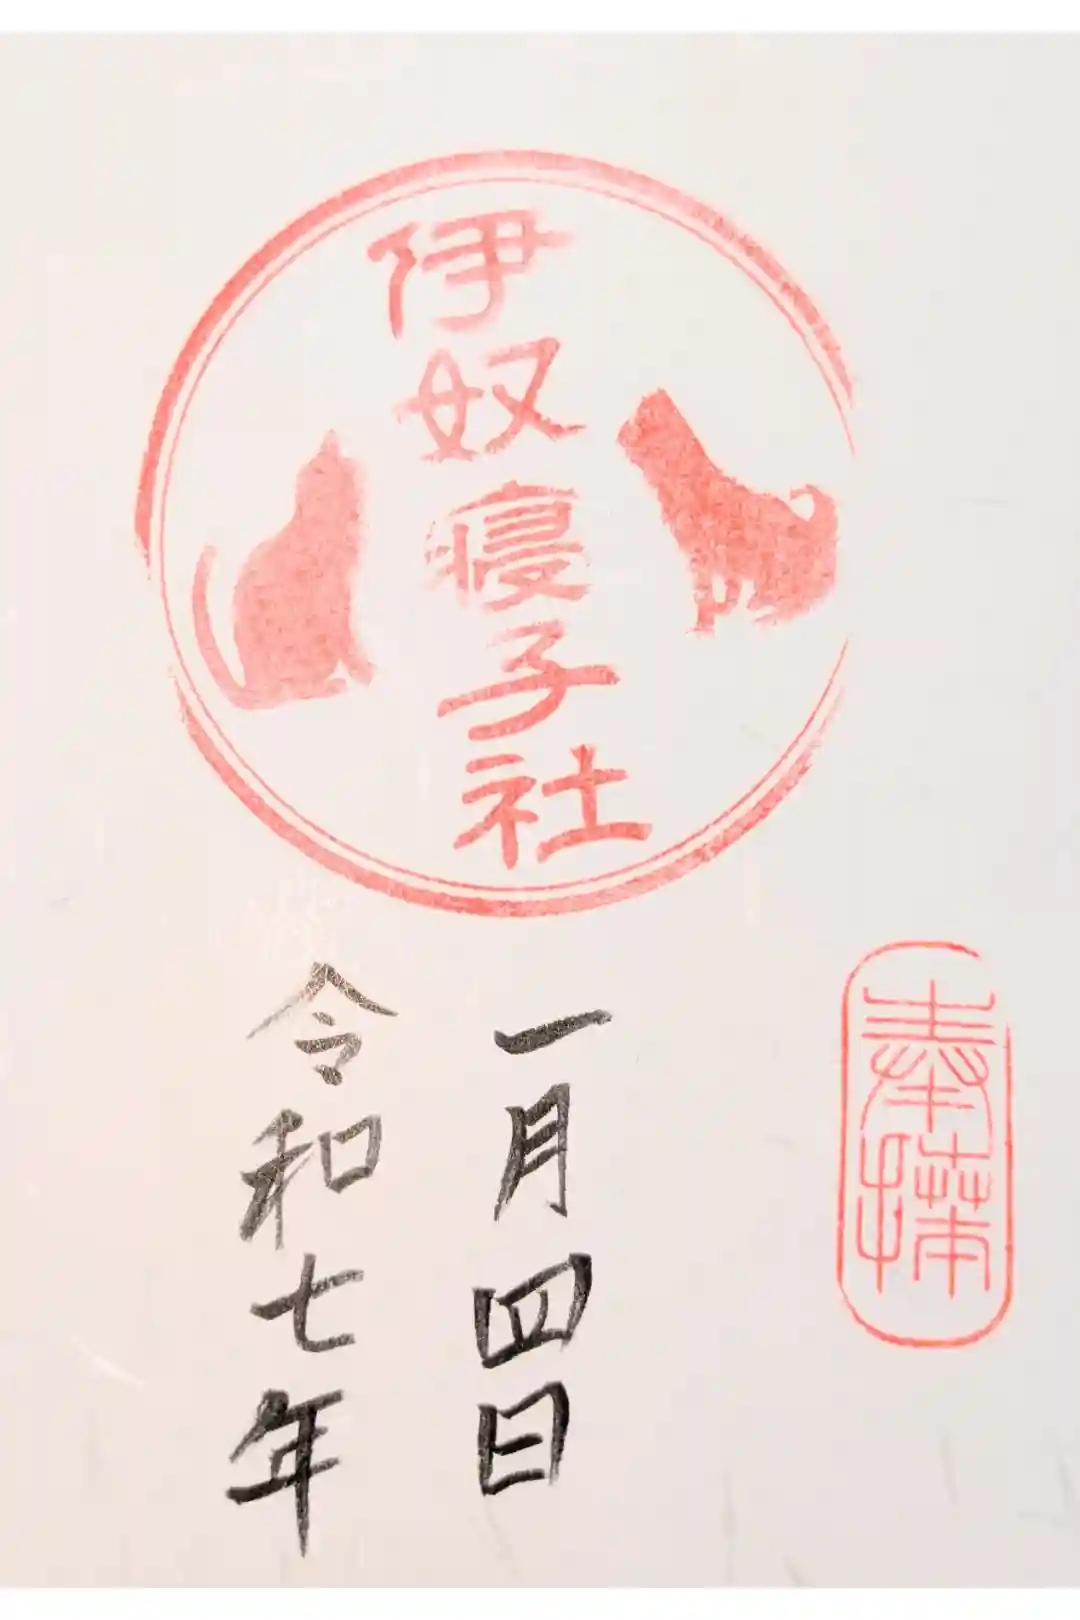 伊奴寝子社
奉拝
一月四日
令和七年